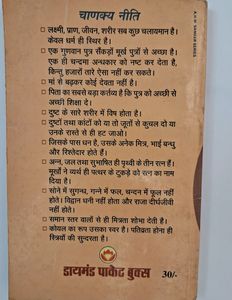 चाणक्य नीति
लक्ष्मी, प्राण, जीवन, शरीर सब कुछ चलायमान है।
केवल धर्म ही स्थिर है।
एक गुणवान पुत्र सैंकड़ों मूर्ख पुत्रों से अच्छा है।
एक ही चन्द्रमा अन्धकार को नष्ट कर देता है,
किन्तु हजारों तारे ऐसा नहीं कर सकते।
मां से बढ़कर कोई देवता नहीं है।
पिता का सबसे बड़ा कर्तव्य है कि पुत्र को अच्छी से
अच्छी शिक्षा दे।
दुष्ट के सारे शरीर में विष होता है।
दुष्टों तथा कांटों को या तो जूतों से कुचल दो या
उनके रास्ते से ही हट जाओ।
जिसके पास धन है, उसके अनेक मित्र, भाई बन्धु
और रिश्तेदार होते हैं।
अन्न, जल तथा सुभाषित ही पृथ्वी के तीन रत्न हैं।
मूर्खों ने व्यर्थ ही पत्थर के टुकड़े को रत्न का नाम
दिया है।
सोने में सुगन्ध, गन्ने में फल, चन्दन में फूल नहीं
होते। विद्वान धनी नहीं होता और राजा दीर्घजीवी
नहीं होते।
समान स्तर वालों से ही मित्रता शोभा देती है।
कोयल का रूप उसका स्वर है। पतिव्रता होना ही
स्त्रियों की सुन्दरता है।
डायमंड पाकेट बुक्स
30/-